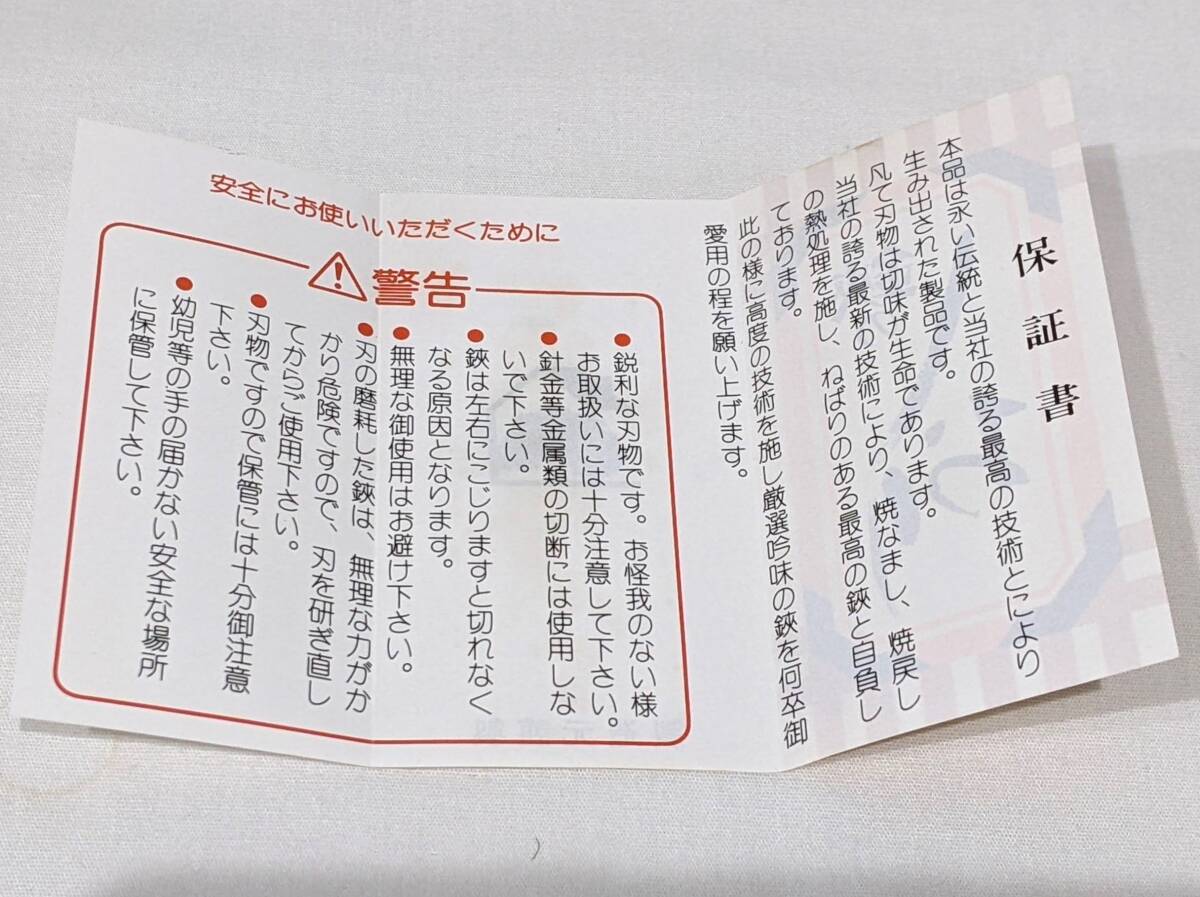 保証書
本品は永い伝統と当社の誇る最高の技術とにより
生み出された製品です。
凡て刃物は切味が生命であります。
当社の誇る最新の技術により、焼なまし、焼戻し
の熱処理を施し、ねばりのある最高の鋏と自負し
ております。
此の様に高度の技術を施し厳選吟味の鋏を何卒御
愛用の程を願い上げます。
安全にお使いいただくために
警告
●鋭利な刃物です。お怪我のない様
お取扱いには十分注意して下さい。
●針金等金属類の切断には使用しな
いで下さい。
●鋏は左右にこじりますと切れなく
なる原因となります。
●無理な御使用はお避け下さい。
●刃の磨耗した鋏は、無理な力がか
かり危険ですので、刃を研ぎ直し
てからご使用下さい。
●刃物ですので保管には十分御注意
下さい。
●幼児等の手の届かない安全な場所
に保管して下さい。